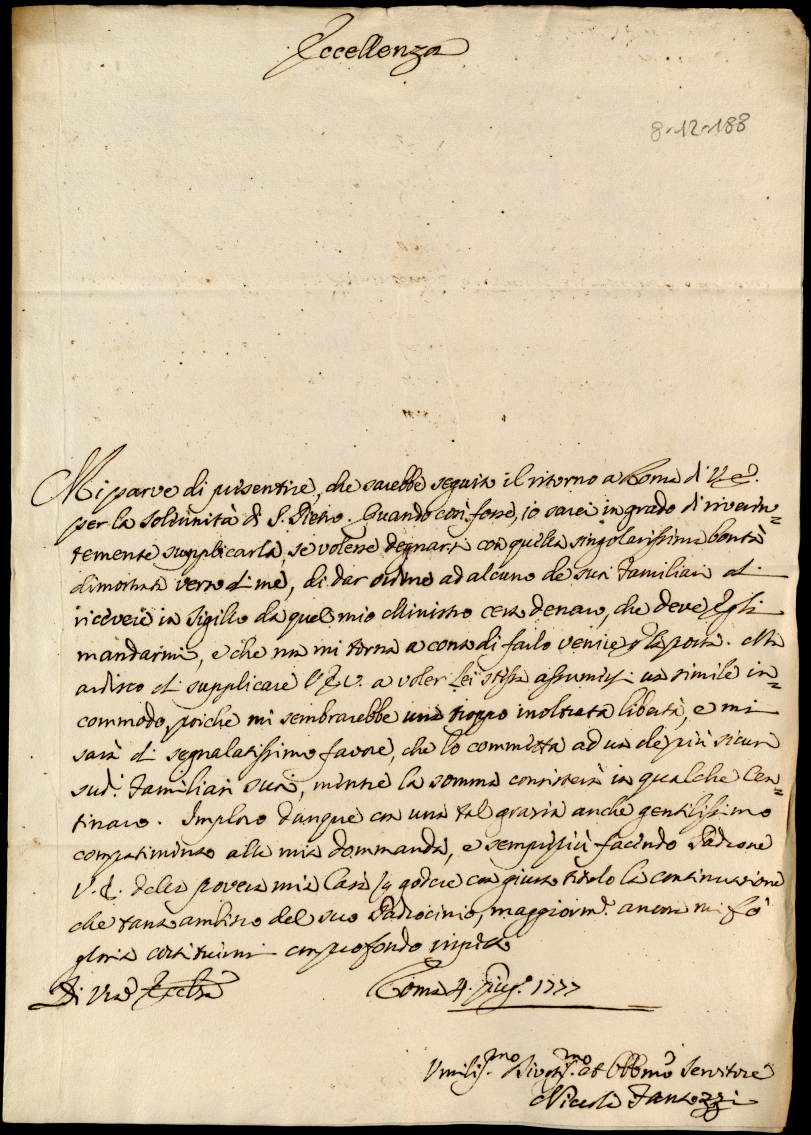 Eccellenza
8-12-188
Mi parve di risentire, che sarebbe seguito il ritorno a Roma di V.E.
per la solennità di S. Pietro. Quando così fosse, io sarei in grado di riveren=
temente supplicarla, se volesse degnarsi con quella singolarissima bontà
dimostrata verso di me, di dar ordine ad alcuno de suoi Familiari di
ricevere in sigillo da quel mio Ministro certo denaro, che deve Egli
mandarmi, e che non mi torna a conto di farlo venire p la posta. Non
ardisco di supplicare l'E.V. a voler Lei stessa assumersi un simile in=
commodo, poiche mi sembrarebbe una troppo inoltrata libertà, e mi
sarà di segnalatissimo favore, che lo committa ad un de più sicuri
sud.i Familiari suoi, mentre la somma consisterà in qualche Cen=
tinaro. Imploro dunque con una tal grazia anche gentilissimo
compatimento alla mia dommanda, e sempre più facendo Padrone
V.E. della povera mia Casa p godere con giusto titolo la continuazione
che tanto ambisco del suo Padrocinio, maggiorm.e ancora mi fò
gloria costituirmi con profondo rispetto
Di Vra Eccellza Roma 4. Giug.o 1777
Umiliss.mo Divotiss.mo et Obbmo Servitore
Niccolò Fantozzi